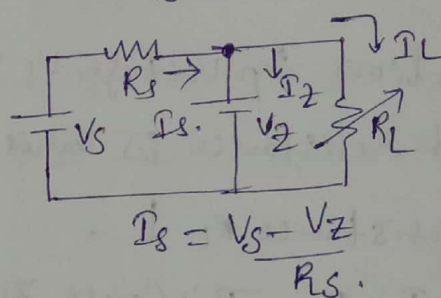 IL
Rs → IZ
VS Is. VZ RL
Is = VS - VZ
RS.